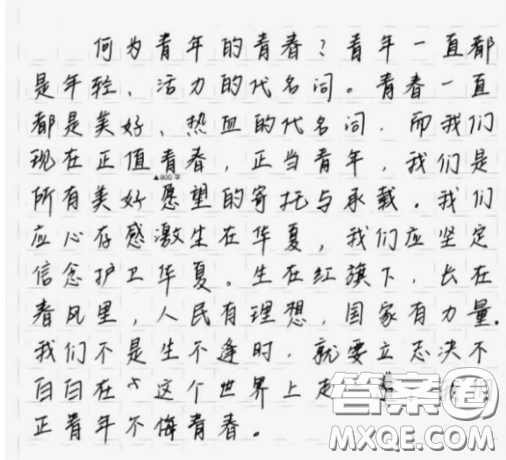 何为青年的青春？青年一直都
是年轻、活力的代名词。青春一直
都是美好、热血的代名词．而我们
现在正值青春，正当青年，我们是
▲800字
所有美好愿望的寄托与承载．我们
应心存感激生在华夏，我们应坚定
信念护卫华夏。生在红旗下，长在
春风里，人民有理想，国家有力量．
我们不是生不逢时．就要立志决不
白白在这个世界上走
正青年不悔青春。
答案圈
MXQE.COM